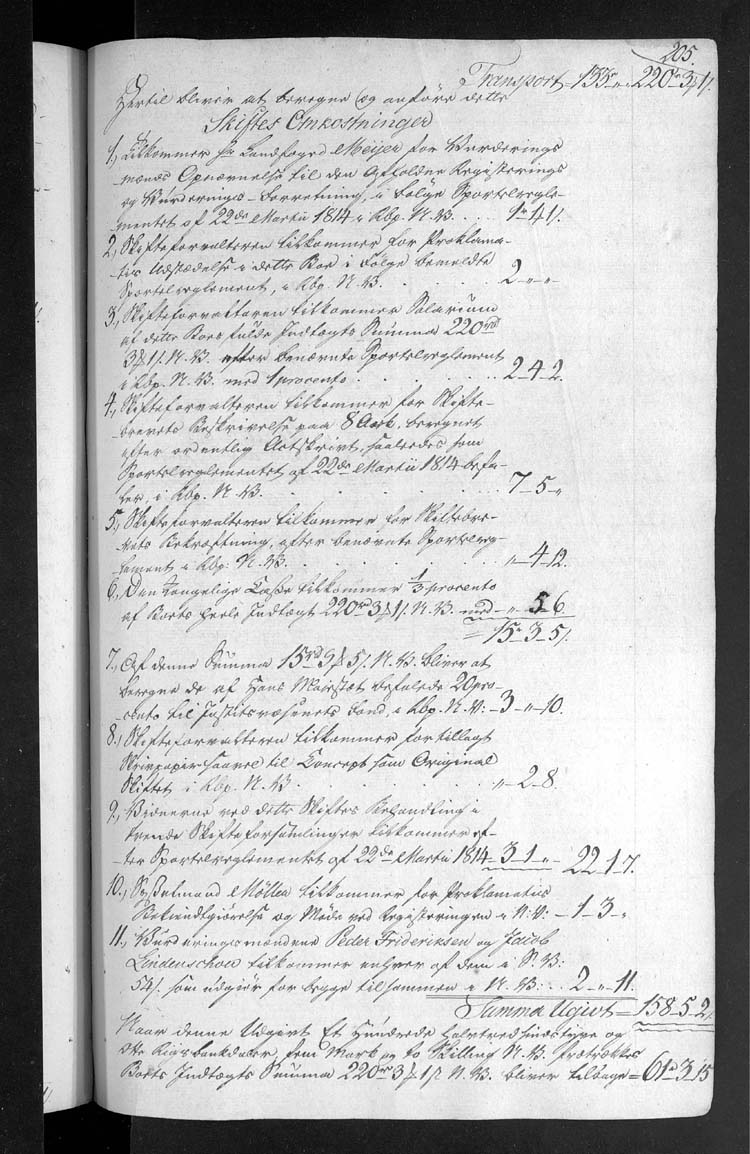 205.
Transport = 133 „ „ 220 3 1/.
Hertil bliver at beregne og anföre dette
Skiftes Omkostninger
1, Tilkommer Hr Landfoged Meijer for Vurderings
mænds Opnævnelse til den afholdne Registerings
og Vurderings-Forretning, i Følge Sportelregle-
mentet af 22de Martii 1814 i Rbp. N. V. . . . 1 4 1/.
2, Skifteforvalteren tilkommer for Proklama-
tis Udstædelse i dette Boe i Følge bemeldte
Sportelreglement, i Rbp. N. V. . . . 2 „ „
3, Skifteforvalteren tilkommer Salarium
af dette Boes fulde Indtægts Summa 220 rd
3 ƶ 1/. N. V. efter benævnte Sportelreglement
i Rbp. N. V. med 1 procento . . . 2-4-2.
4, Skifteforvalteren tilkommer for Skifte-
brevets Beskrivelse paa 8 Aark, beregnet
efter ordentlig Actskrivt, saaledes som
Sportelreglementet af 22de Martii 1814 befa-
ler, i Rbp. N. V. . . . 7-5-„
5, Skifteforvalteren tilkommer for Skiftebre-
vets Bekræftning, efter benævnte Sportelreg-
lement i Rbp. N. V. . . . „-4-12.
6, Den Kongelige Casse tilkommer 1/3 procento
af Boets heele Indtægt 220 rd 3 ƶ 1/. N. V. med - „ 5-6
= 15-3-5/.
7, Af denne Summa 15 rd 3 ƶ 5/. N. V. bliver at
beregne de af Hans Majestæt befalede 20 pro-
cento til Justitsvæsenets Fond, i Rbp. N. V: - 3-„-10.
8, Skifteforvalteren tilkommer for tillagt
Skrivpapir saavel til Concept som Original
Skiftet i Rbp. N. V. . . . „-2-8.
9, Vidnerne ved dette Skiftes Behandling i
tvende Skifteforsamlinger tilkommer ef-
ter Sportelreglementet af 22de Martii 1814 - 3-1-„ 22 1 7.
10, Sysselmand Möller tilkommer for Proklamatis
Bekiendtgiörelse og Møde ved Registeringen i N: V: - 1-3-„
11, Vurderingsmændene Peder Frideriksen og Jacob
Lindenschou tilkommer enhver af dem i S. V:
54/. som udgiör for begge tilsammen i N. V: . . 2-„-11.
Summa Udgivt = 158-5-2/
Naar denne Udgivt Et Hundrede halvtredsindstyve og
otte Rigsbankdaler, fem Mark og to Skilling N. V. fratrækkes
Boets Indtægts Summa 220 rd 3 ƶ 1/. N. V. bliver tilbage = 61 3 15